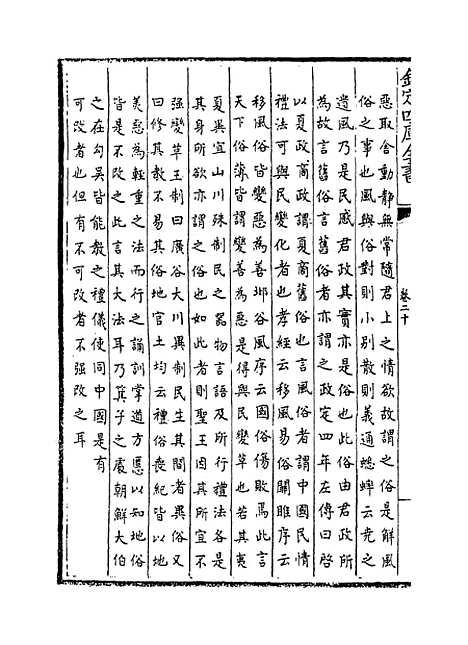 欽定四庫全書
卷二十
惡取舍動静無常隨君上之情欲故謂之俗是解風
俗之事也風與俗對則小别散則義通蟋蟀云堯之
遺風乃是民感君政其實亦是俗也此俗由君政所
為故言舊俗言舊俗者亦謂之政定四年左傳曰啓
以夏政商政謂夏商舊俗也言風俗者謂中國民情
禮法可與民變化者也孝經云移風易俗關雎序云
移風俗皆變惡為善邶谷風序云國俗傷敗焉此言
天下俗薄皆謂變善為惡是得與民變革也若其夷
夏異宜山川殊制民之器物言語及所行禮法各是
其身所欲亦謂之俗也如此者則聖王因其所宜不
强變革王制曰廣谷大川異制民生其間者異俗又
曰修其教不易其俗地官土均云禮俗喪紀皆以地
美惡為輕重之法而行之誦訓掌道方慝以知地俗
皆是不改之此言其大法耳乃箕子之處朝鮮大伯
之在勾吳皆能教之禮儀使同中國是有
可改者也但有不可改者不强改之耳